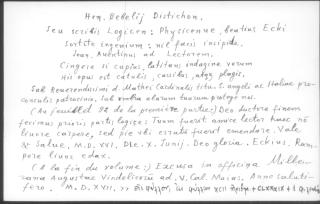 Hen. Bebelij Distichon.
Seu scribis Logicen: Physicenue, beatius Ecki
Sortite ingenium: nil facis insipide.
Joan. Auentinus ad Lectorem.
Cingere si cupias, latitans indagine verum
His opus est catulis, cassibus, atque plagis.
Sub Reuerendissimi d. Mathei Cardinalis titu. S. angeli ac Italiae pro-
consulis patrocinio, Sub umbra alarum tuarum protege nos.
(Au feuillet 92 de la première partie:) Deo ductore finem
fecimus prioris partis logices: Tuum fuerit amice lector hunc nō
liuore carpere, sed pie ubi erratū fuerit emendare. Vale
& Salue, M.D.XVI, Die. X. Junij. Deo gloria. Eckius. Rum-
pere liuor edax.
(à la fin du volume:) Excusa in officina Millera-
na Augustae Vindelicorū ad. V. Cal. Maias. Anno saluti-
fero. M.D.XVII.